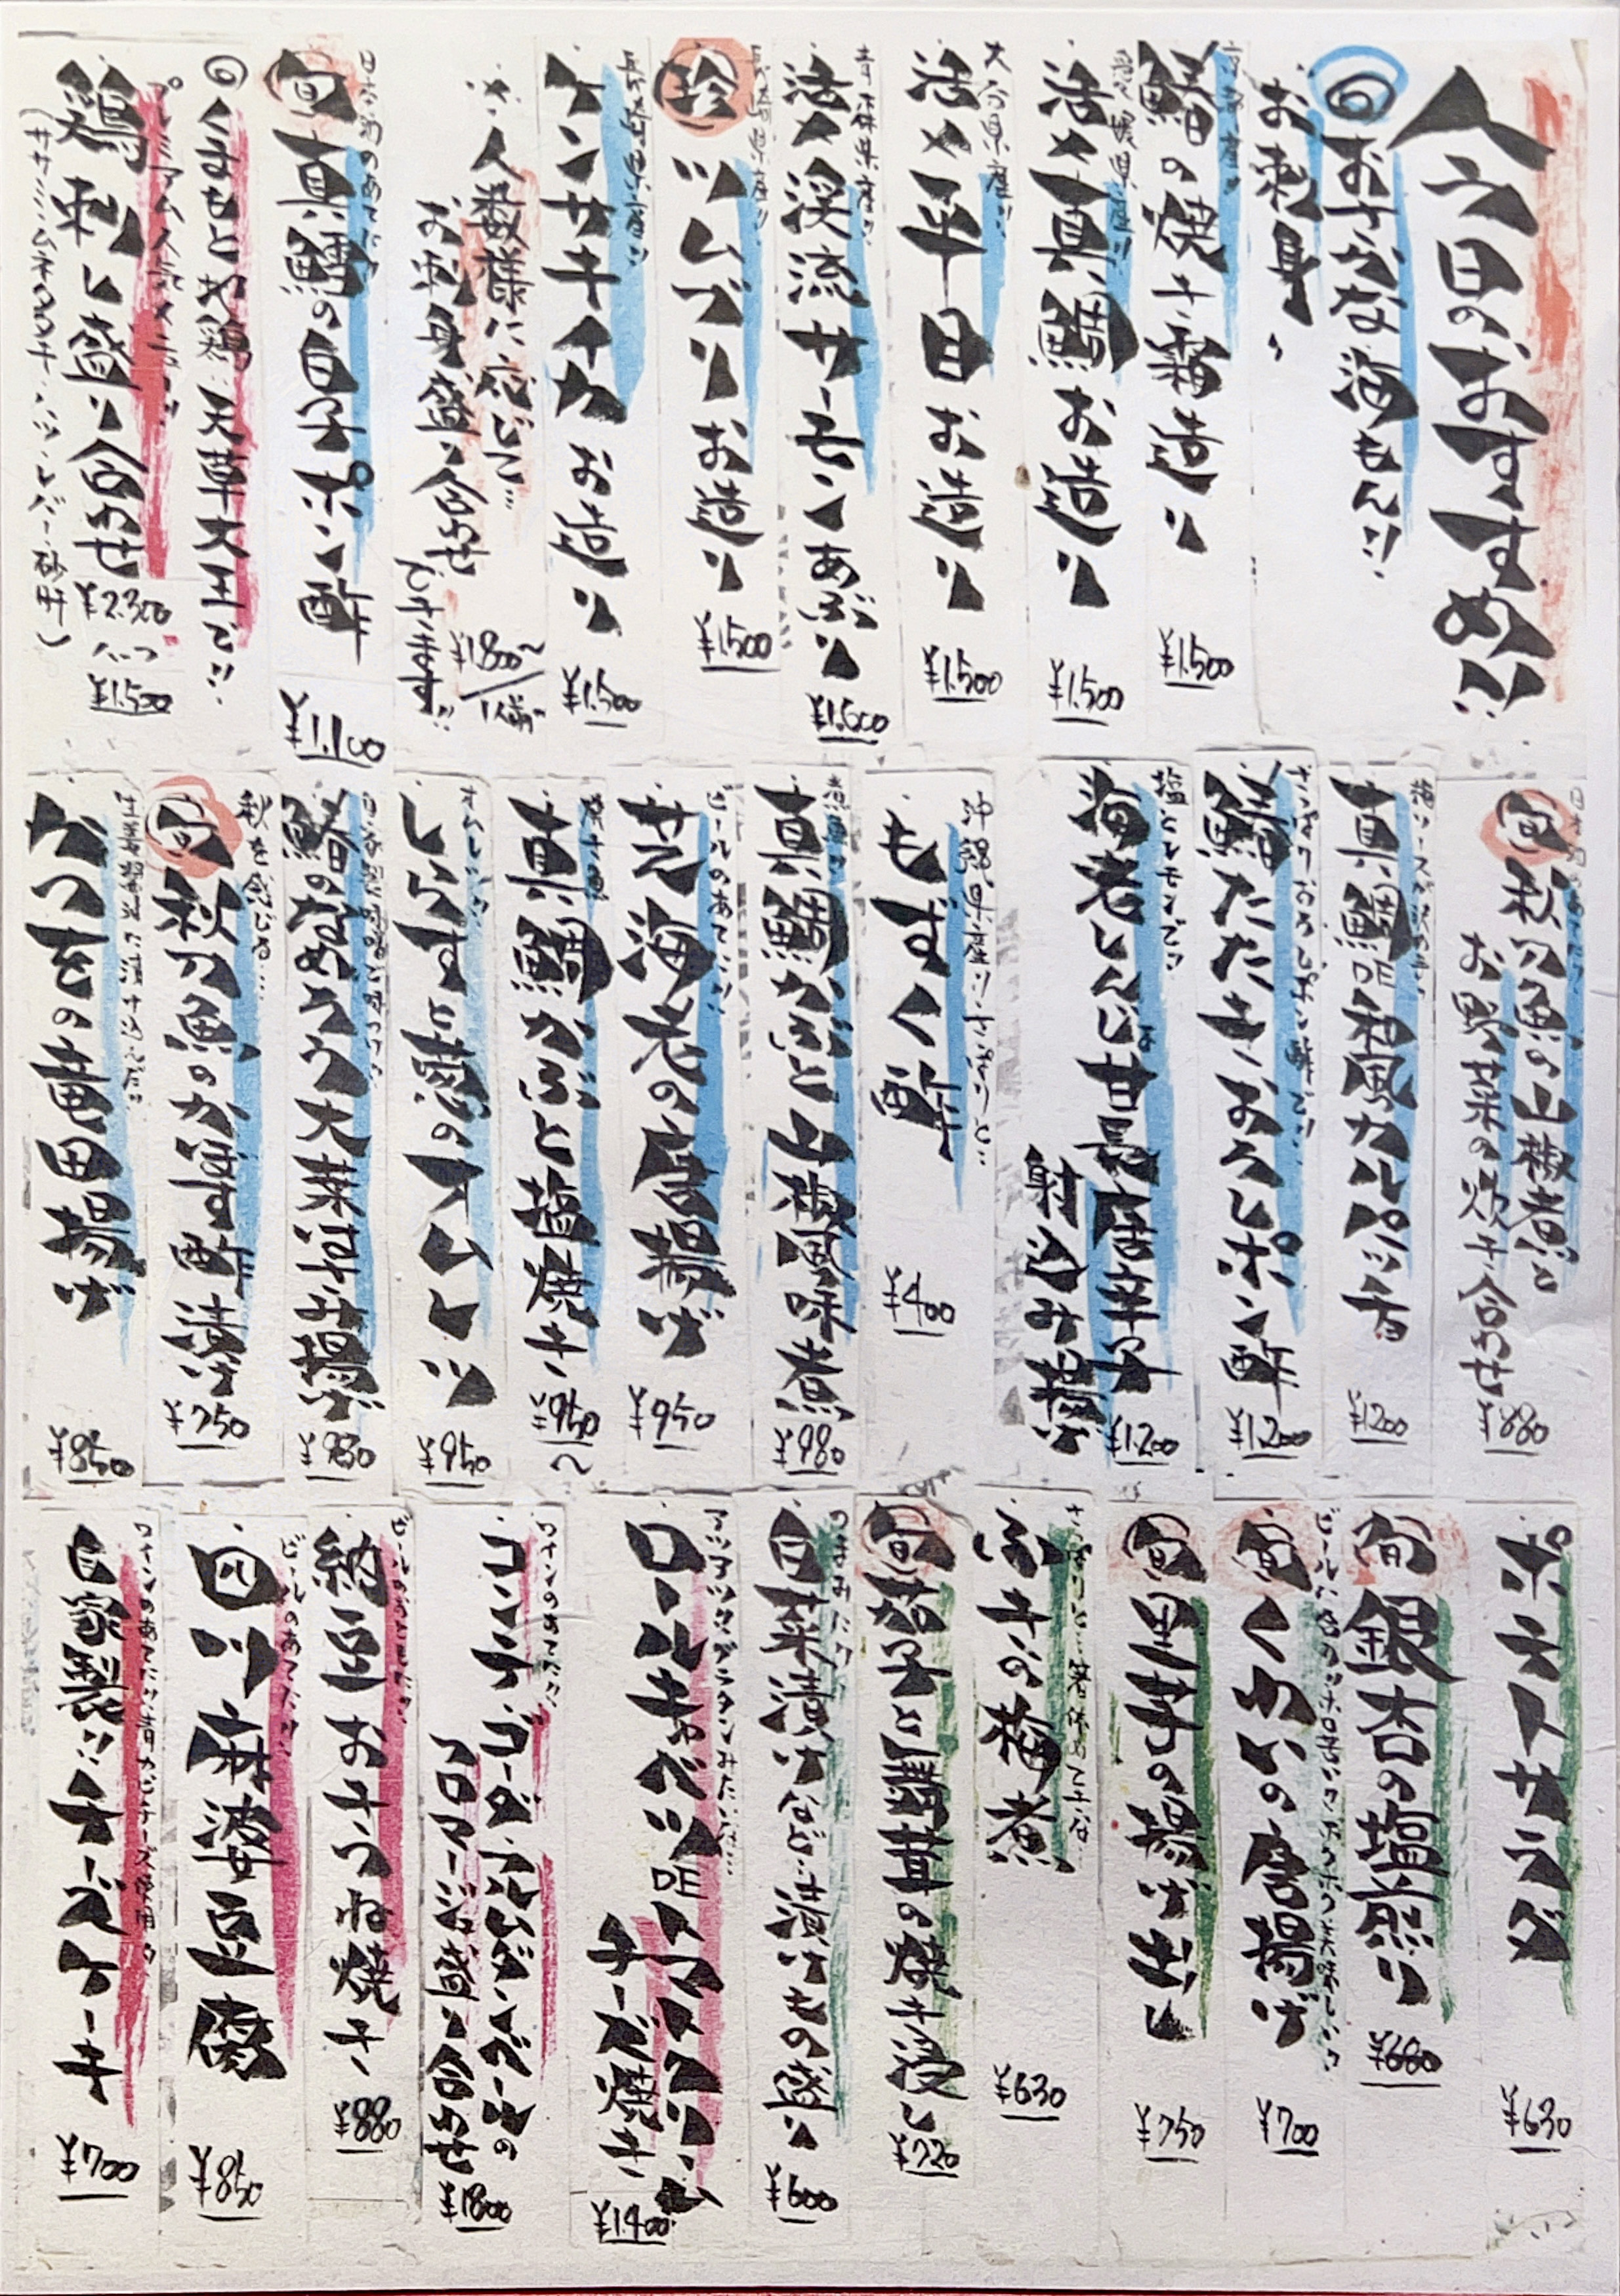 今日のおすすめ!!
◎おさかな海もん!!
お刺身、
鰆の焼き霜造り
¥1.500
愛媛県産!!
活〆真鯛お造り
¥1.500
大分県産!!
活〆平目お造り
¥1.500
青森県産!!
活〆渓流サーモンあぶり
長崎県産!!
珍 ツムブリお造り
¥1.500
長崎県産!!
ケンサキイカお造り
¥1.500
※人数様に応じて…
お刺身盛り合わせ
できます!!
¥1800〜/1人前〜
日本酒のあてに!!
旬 真鱈の白子ポン酢
¥1.100
◎くまもと地鶏 天草大王で!!
プレミアム人気メニュー!!
鶏刺し盛り合わせ
¥2.300
ハーフ
¥1.500
旬 秋の魚の山椒煮と
お野菜の炊き合わせ
¥880
真鯛の和風カルパッチョ
¥1200
さっぱりおろしポン酢で!!
鰆たたき、おろしポン酢
¥1.200
塩とレモンで!!
海老しんじょ甘長唐辛子
射込み揚げ
¥1.200
沖縄県産!!さっぱりと…
もずく酢
¥400
真鯛かぶと山椒風味煮
¥980
ビールのあてに!!
芝海老の唐揚げ
¥950
真鯛かぶと塩焼き
¥950〜
しらすと葱のオムレツ
¥950
鰆のなめろう大葉はさみ揚げ
秋を感じる…
旬 秋の魚のかぼす酢漬け
¥750
かつをの竜田揚げ
¥850
ポテトサラダ
¥630
旬 銀杏の塩煎り
¥680
旬 くわいの唐揚げ
¥700
旬 里芋の揚げ出し
¥750
さっぱりと…箸休めてきな
ふきの梅煮
¥630
旬 茄子と舞茸の焼き浸し
白菜漬けなど…漬けもの盛り
¥600
アツアツグラタンみたいな…
ロールキャベツのトマトクリーム
チーズ焼き
¥1.400
ワインのあてに!!
コンテ、ゴーダ、アルムゲハイムニスの
フロマージュ盛り合わせ
¥1800
ビールのおともに!!
納豆おきつね焼き
¥880
ビールのあてに!!
四川麻婆豆腐
¥850
ワインのあてに!!青カビチーズ使用!!
自家製!!チーズケーキ
¥700